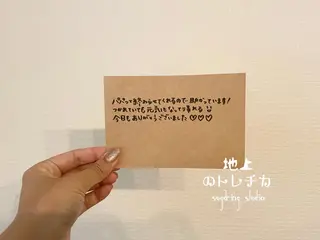 パパッと終わらせてくれるので助かっています!
つかれていても元気になって帰れる
今日もありがとうございました♡♡♡
地上
のトレチカ